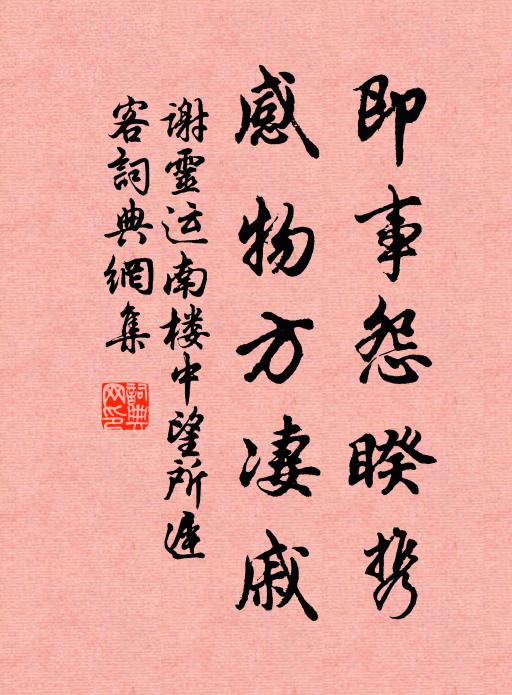 即事怨睽携
感物方凄戚
谢灵运南楼中望所遲
客詞典網集
詞典网印